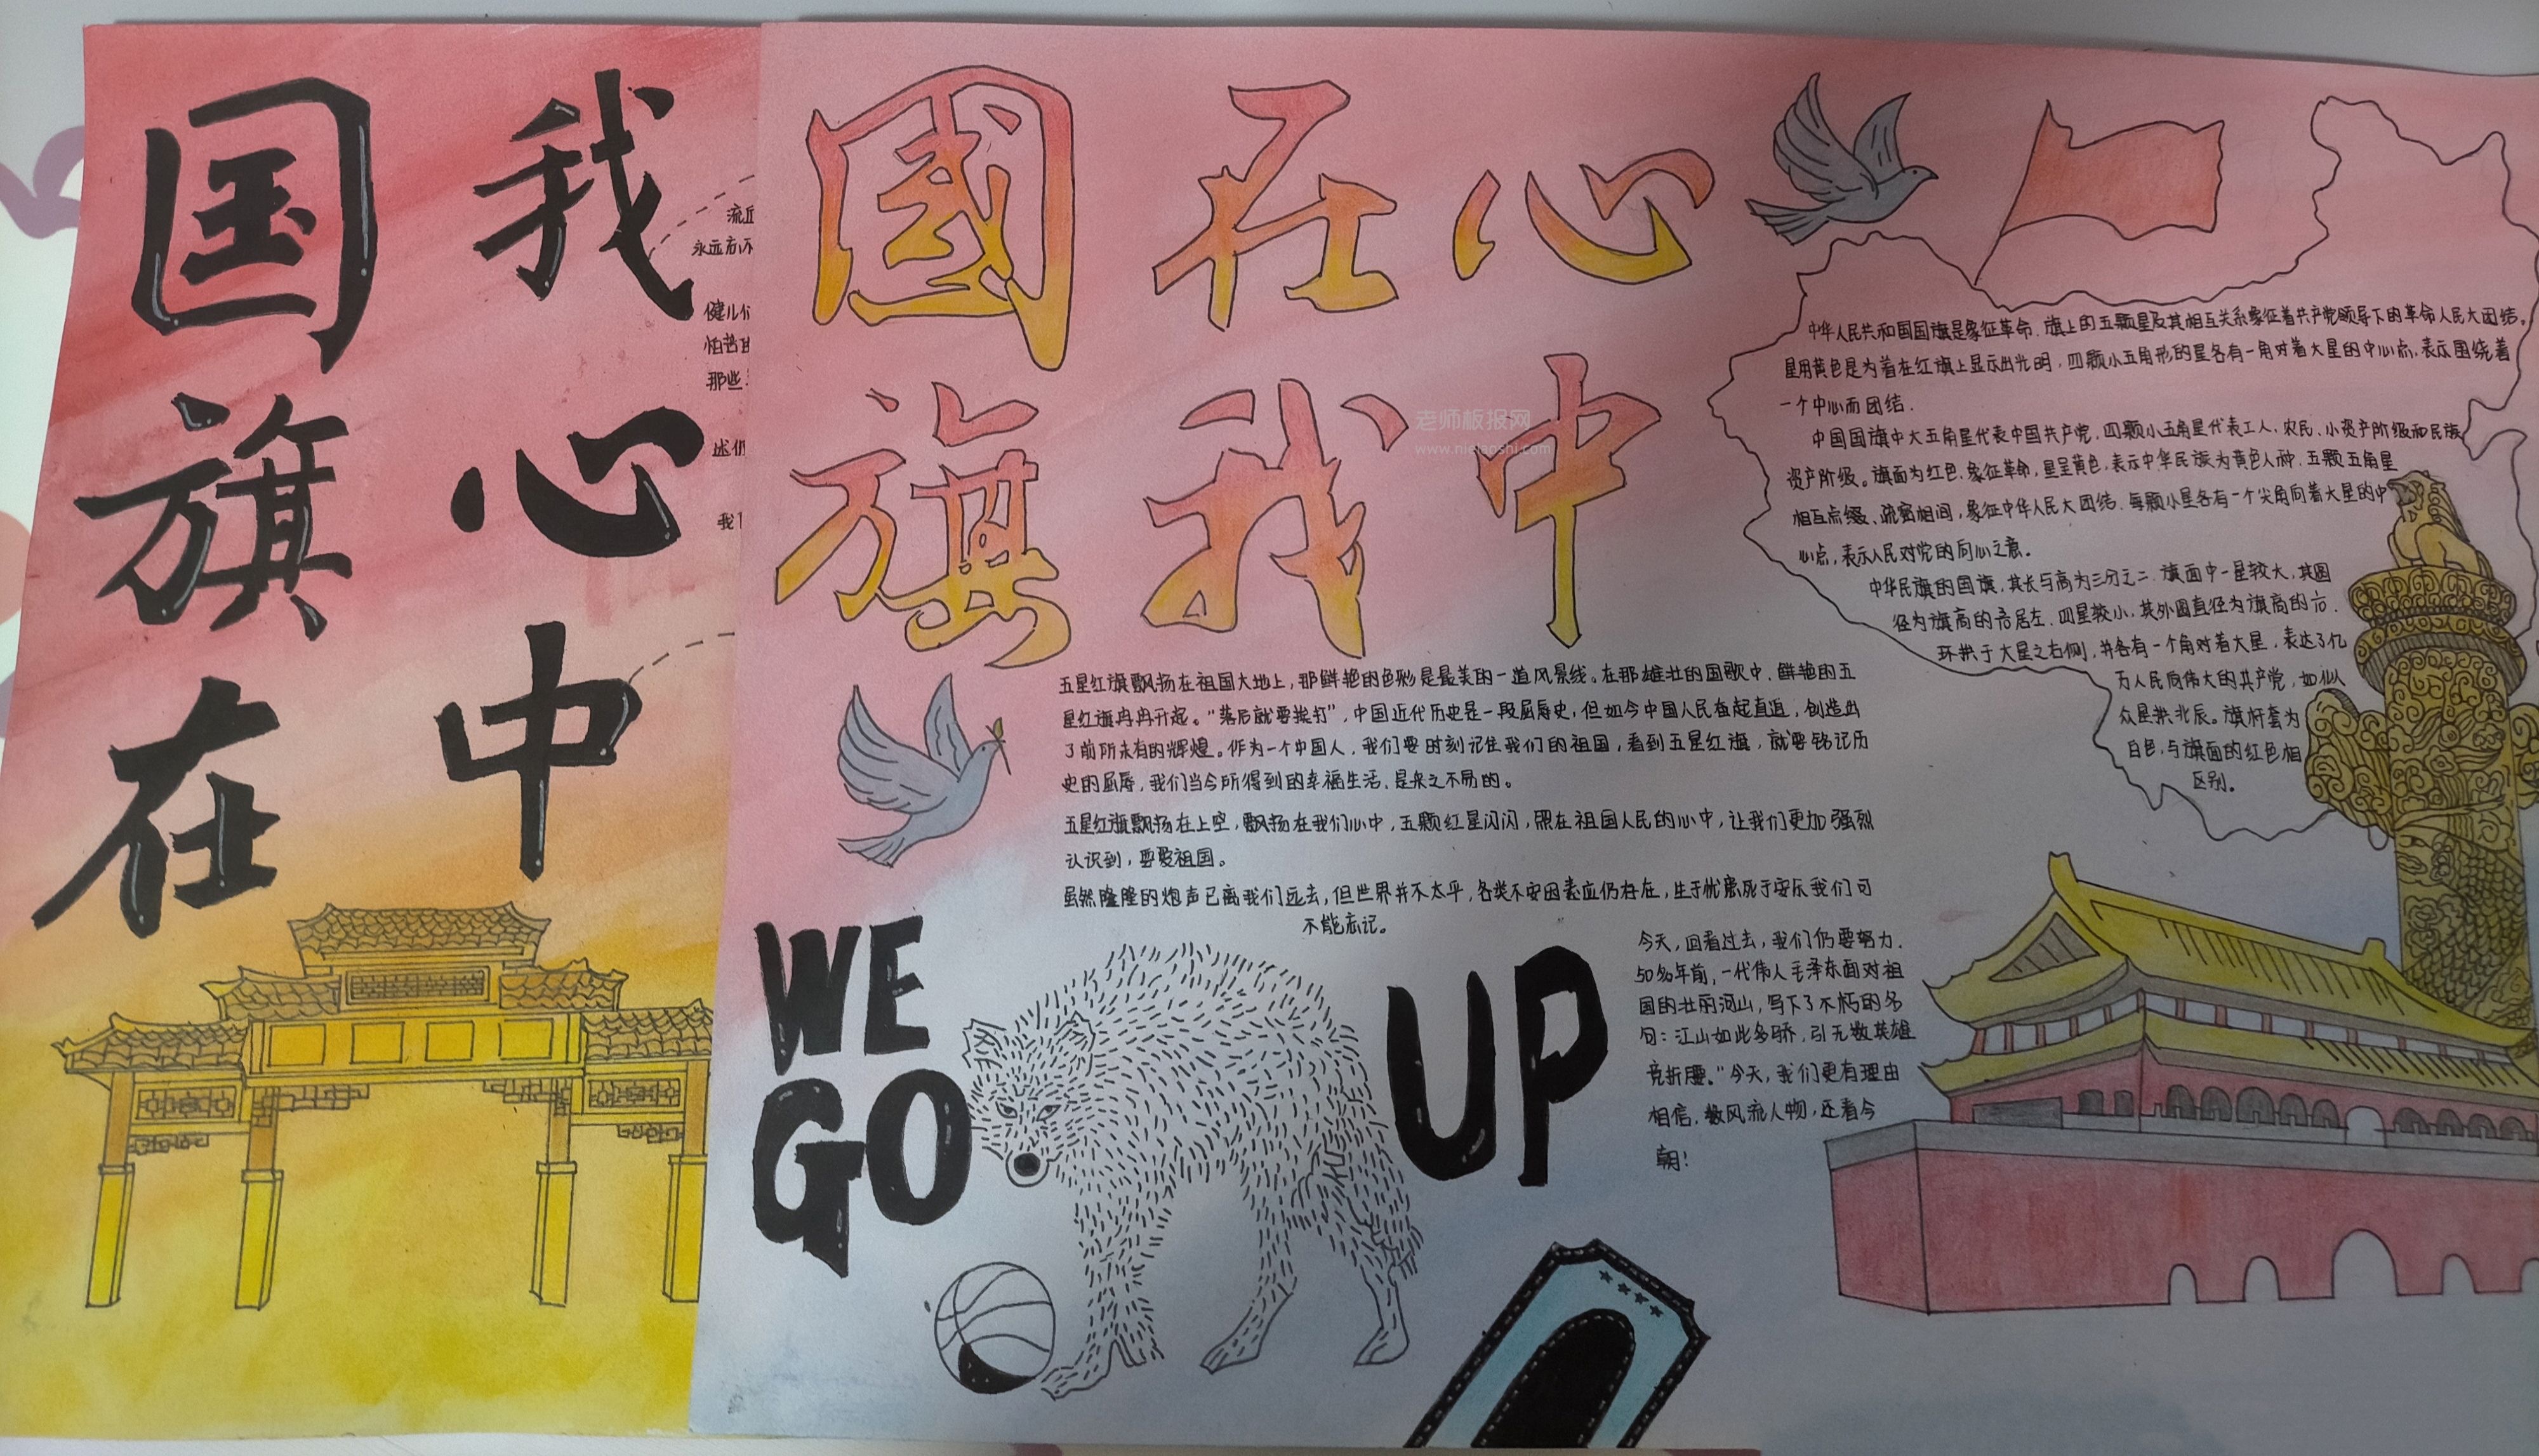 国旗在
我心中
流
永远
健儿们
怕苦
那些
述
我
國在心
旗我中
老师板报网
中华人民共和国国旗是象征革命.旗上的五颗星及其相互关系象征着共产党领导下的革命人民大团结。
星用黄色是为着在红旗上显示出光明,四颗小五角形的星各有一角对着大星的中心点,表示围绕着
一个中心而团结.
中国国旗中大五角星代表中国共产党,四颗小五角星代表工人,农民、小资产阶级和民族
资产阶级。旗面为红色,象征革命,星呈黄色,表示中华民族为黄色人种.五颗五角星
相互点缀、疏密相间,象征中华人民大团结.每颗小星各有一个尖角向着大星的中
心点,表示人民对党的向心之意。
中华民旗的国旗,其长与高为三分之二.旗面中一星较大,其圆
径为旗高的 居左.四星较小,其外圆直径为旗高的
环拱于大星之右侧,并各有一个角对着大星,表达了亿
万人民向伟大的共产党,如似
众星拱北辰。旗杆套为
白色,与旗面的红色相
区别。
五星红旗飘扬在祖国大地上,那鲜艳的色彩是最美的一道风景线。在那雄壮的国歌中,鲜艳的五
星红旗冉冉升起。“落后就要挨打”,中国近代历史是一段屈辱史,但如今中国人民奋起直追,创造出
了前所未有的辉煌。作为一个中国人,我们要时刻记住我们的祖国,看到五星红旗,就要铭记历
史的屈辱,我们当今所得到的幸福生活,是来之不易的。
五星红旗飘扬在上空,飘扬在我们心中,五颗红星闪闪,照在祖国人民的心中,让我们更加强烈
认识到,要爱祖国。
虽然隆隆的炮声已离我们远去,但世界并不太平,各类不安因素应仍存在,生于忧患死于安乐我们可
不能忘记。
今天,回看过去,我们仍要努力.
50多年前,一代伟人毛泽东面对祖
国的壮丽河山,写下了不朽的名
句:江山如此多骄,引无数英雄
竞折腰。”今天,我们更有理由
相信,数风流人物,还看今
朝!
WE
GO
UP